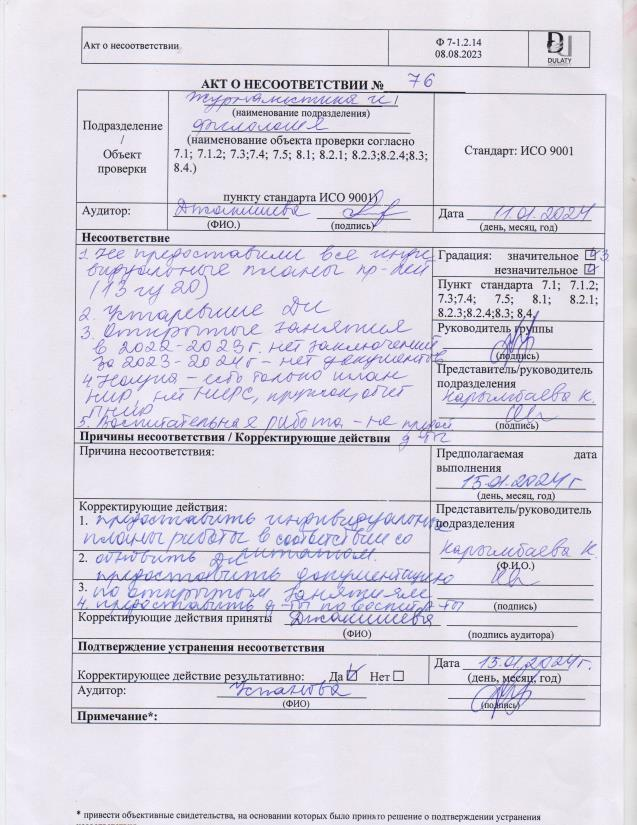 Акт о несоответствии
Ф 7-1.2.14
08.08.2023
DULATY
АКТ О НЕСООТВЕТСТВИИ № 76
Подразделение
/
Объект
проверки
Журналистика и
(наименование подразделения)
филология
(наименование объекта проверки согласно
7.1; 7.1.2; 7.3;7.4; 7.5; 8.1; 8.2.1; 8.2.3;8.2.4;8.3;
8.4.)
пункту стандарта ИСО 9001)
Стандарт: ИСО 9001
Аудитор:
Джанишева
(ФИО.) (подпись)
Дата 11.01.2024
(день, месяц, год)
Несоответствие
1. Не предоставили все инди
видуальные планы пр-лей
(13 из 20)
2. Устаревшие ДИ
3. Открытые занятия
в 2022-2023 г. нет заключений
за 2023-2024 г - нет документов
4. Наука - есть только план
НИР, нет НИРС, кружок, отчет
ППИР
5. Воспитательная работа - не предост
д-ты
Градация: значительное
незначительное
Пункт стандарта 7.1; 7.1.2;
7.3;7.4; 7.5; 8.1; 8.2.1;
8.2.3;8.2.4;8.3; 8.4.
Руководитель группы
(подпись)
Представитель/руководитель
подразделения
Нарымбаева К.
(подпись)
Причины несоответствия / Корректирующие действия
Причина несоответствия:
Предполагаемая дата
выполнения
15.01.2024г
(день, месяц, год)
Корректирующие действия:
1. предоставить индивидуальные
планы работы в соответствие со
штатом.
2. обновить ДИ
предоставить документацию
3. по открытым занятиям
4. предоставить д-ты по воспит. р-ты
Представитель/руководитель
подразделения
Нарымбаева К.
(Ф.И.О.)
(подпись)
Корректирующие действия приняты Джанишева
(ФИО) (подпись аудитора)
Подтверждение устранения несоответствия
Корректирующее действие результативно: Да Нет
Дата 15.01.2024г.
(день, месяц, год)
Аудитор: Успанова
(ФИО)
(подпись)
Примечание*:
* привести объективные свидетельства, на основании которых было принято решение о подтверждении устранения